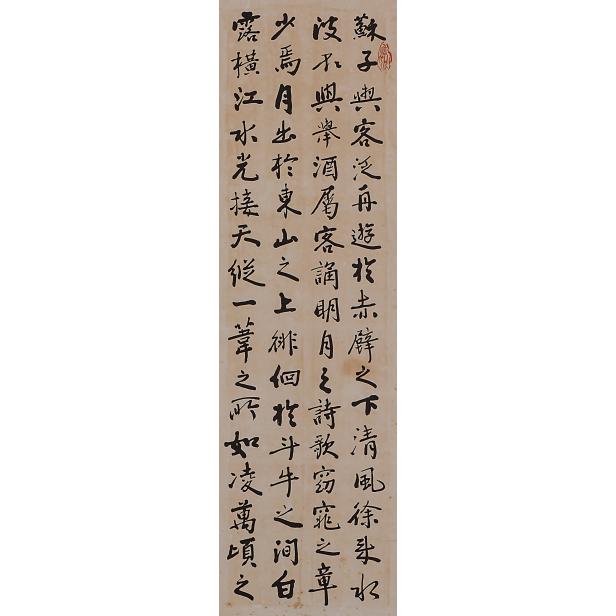 蘇子與客泛舟遊於赤壁之下清風徐來水
波不興舉酒屬客誦明月之詩歌窈窕之章
少焉月出於東山之上徘徊於斗牛之間白
露橫江水光接天縱一葦之所如凌萬頃之